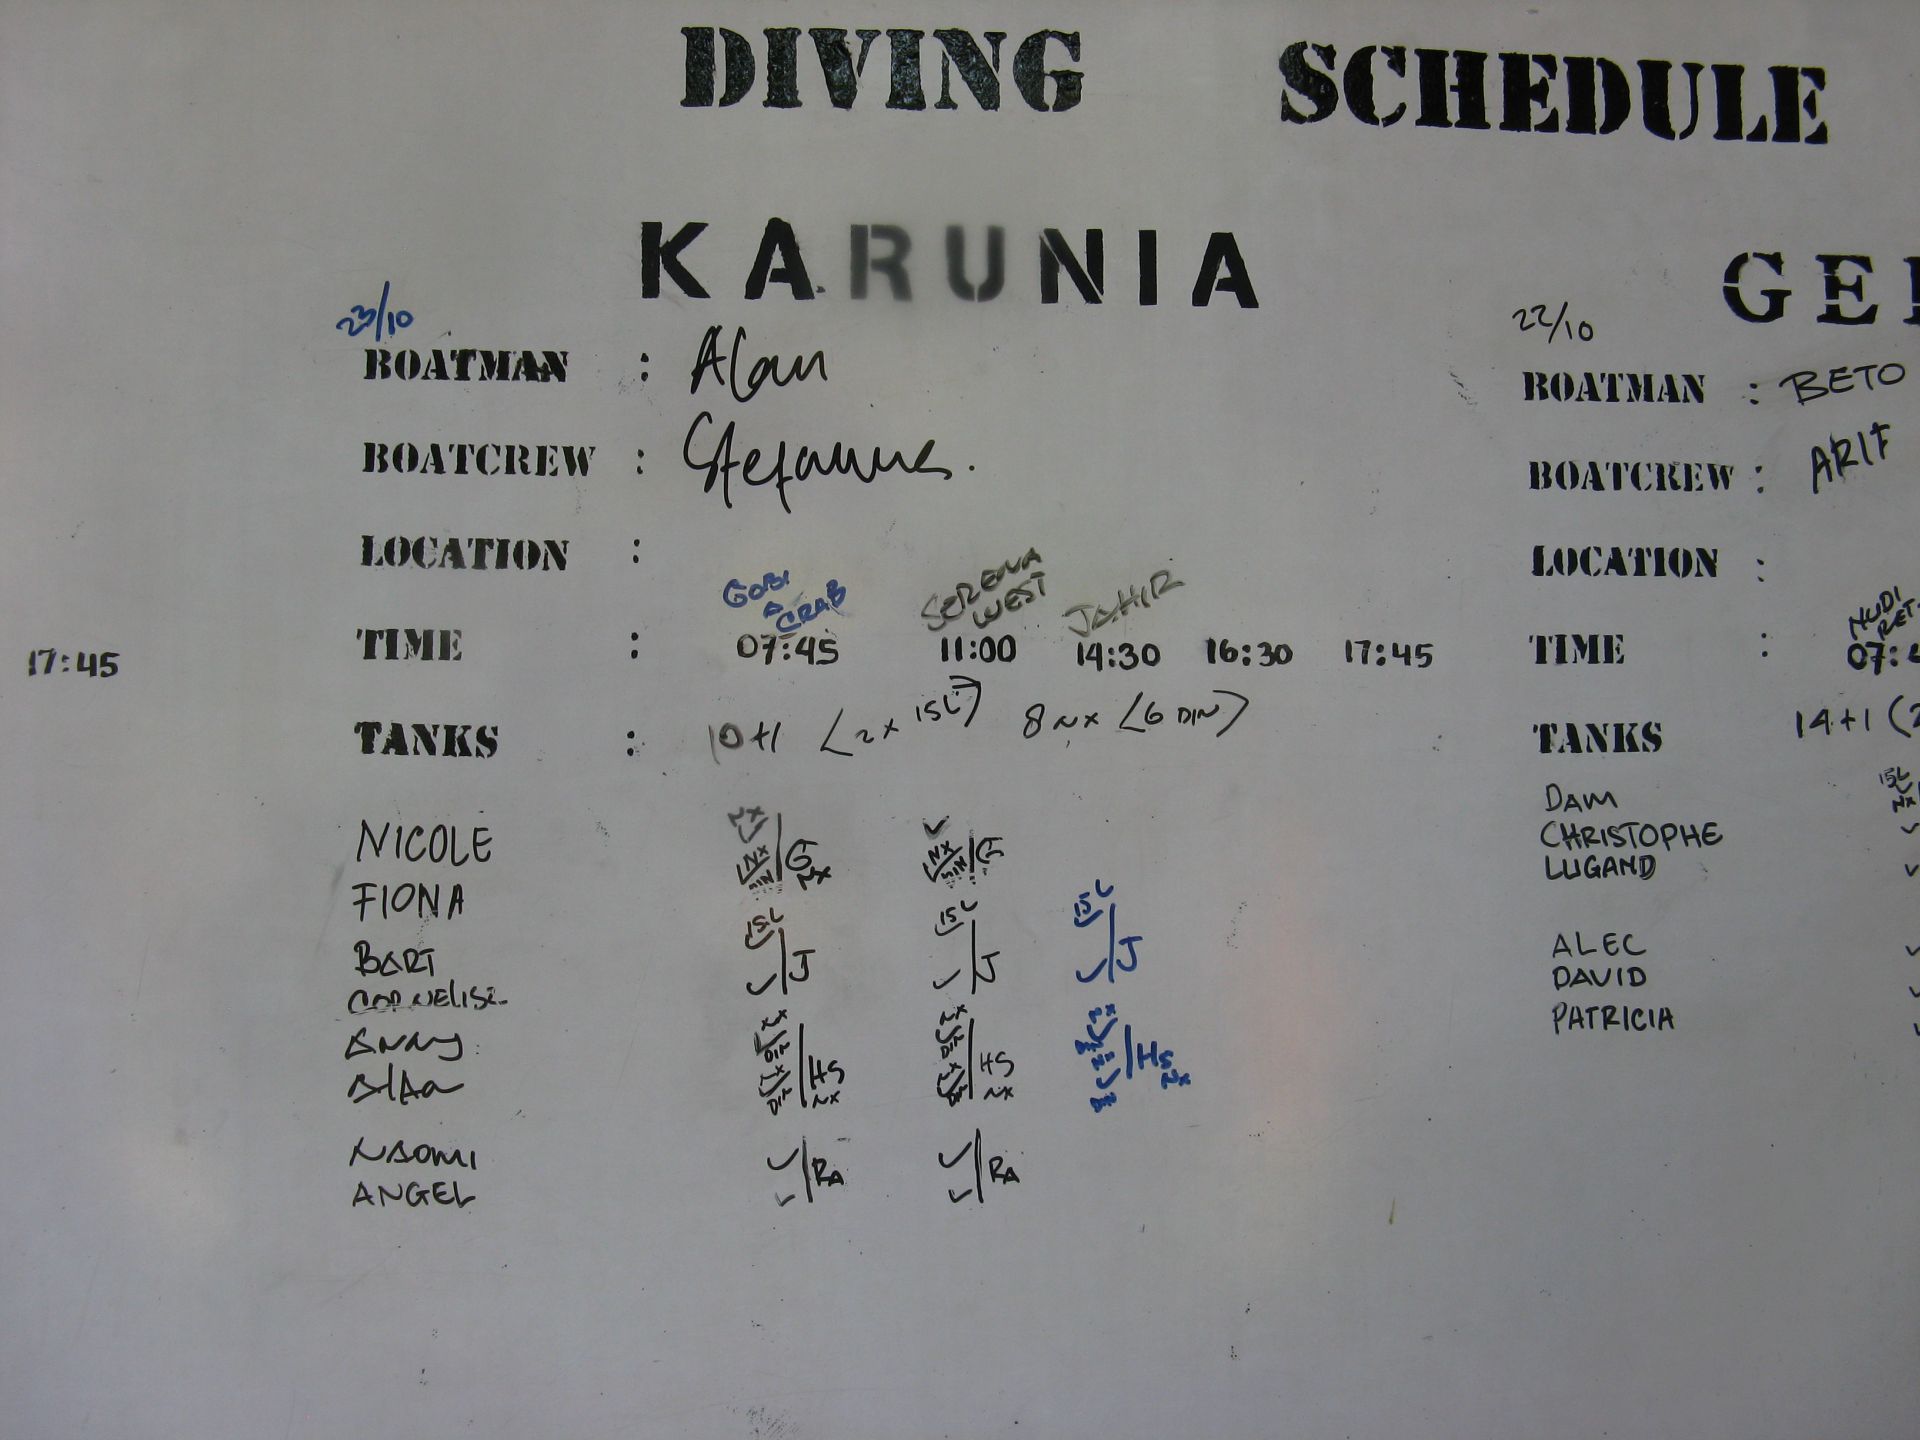 DIVING SCHEDULE
KARUNIA
23/10
BOATMAN : Alan
BOATCREW : Stefanus.
LOCATION :
GOBI
A CRAB
SERENA
WEST
JAHIR
TIME : 07:45 11:00 14:30 16:30 17:45
TANKS : 10+1 (2x 15L) 8 NX (6 DIN)
NICOLE NX ✓ ✓
FIONA NX DIN G NX NX DIN G
BART 15L ✓ 15L ✓ 15L ✓
J J J
✓ ✓ ✓
NX DIN NX DIN
HS NX HS NX HS NX
NX DIN NX DIN
NAOMI ✓ ✓
RA RA
ANGEL ✓ ✓
17:45
GE
22/10
BOATMAN : BETO
BOATCREW : ARIF
LOCATION :
NUDI
RET
TIME : 07:4
TANKS 14+1 (2
15L
NX
DAM
CHRISTOPHE ✓
LUGAND ✓
ALEC ✓
DAVID ✓
PATRICIA ✓